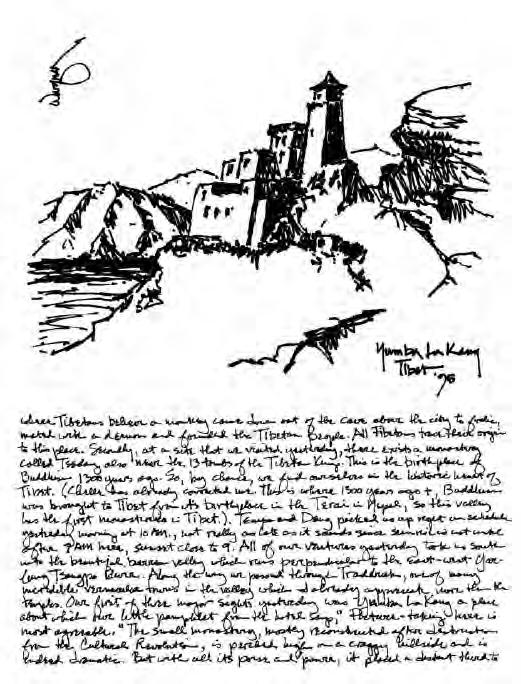 Yumba La Kang
Tibet '95
where Tibetans believe a monkey came down out of the cave above the city to frolic,
mated with a demon and founded the Tibetan People. All Tibetans trace their origin
to this place. Secondly, at a site that we visited yesterday, there exists a monastery
called also near the 13 tombs of the Tibetan Kings. This is the birthplace of
Buddhism 1300 years ago. So, by chance, we find ourselves in the historic heart of
Tibet. ( has already corrected me. This is where 1300 years ago +, Buddhism
was brought to Tibet from its birthplace in the Terai in Nepal, so this valley
has the first monasteries in Tibet.) and picked us up right on schedule
yesterday morning at 10 AM, not really as late as it sounds since sunrise is not until
after 8 AM here, sunset close to 9. All of our ventures yesterday took us south
into the beautiful valley which runs perpendicular to the east-west
Tsangpo River. Along the way we passed through Tradduk, one of many
incredible vernacular towns in the valley which I already appreciate more than the
temples. Our first of three major sights yesterday was Yumba La Kang a place
about which the little pamphlet from the hotel says, "Picture-taking here is
most agreeable." The small monastery, mostly reconstructed after destruction
from the Cultural Revolution, is perched high on a craggy hillside and is
indeed dramatic. But with all its poise and power, it placed a distant third to